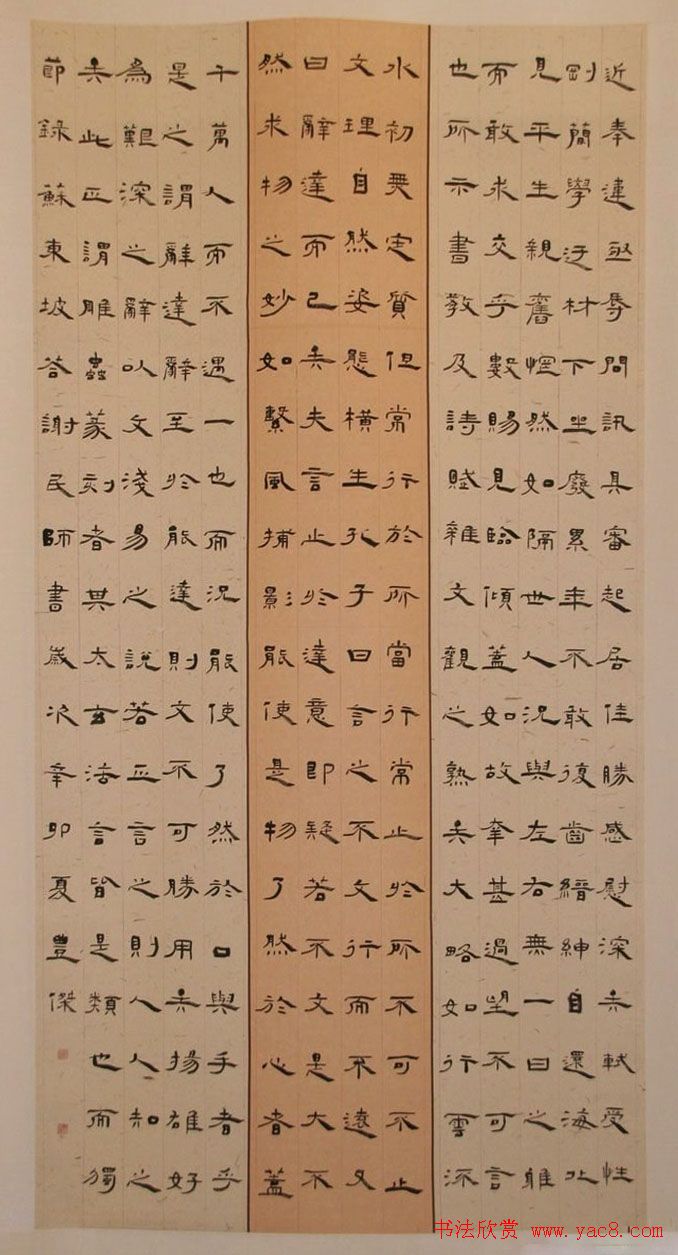 近奉違亟辱問訊具審起居佳勝感慰深矣軾受性
剛簡學迂材下坐廢累年不敢復齒縉紳自還海北
見平生親舊惘然如隔世人況與左右無一日之雅
而敢求交乎數賜見臨傾蓋如故幸甚過望不可言
也所示書教及詩賦雜文觀之熟矣大略如行雲流
水初無定質但常行於所當行常止於所不可不止
文理自然姿態橫生孔子曰言之不文行而不遠又
曰辭達而已矣夫言止於達意即疑若不文是大不
然求物之妙如繫風捕影能使是物了然於心者蓋
千萬人而不遇一也而況能使了然於口與手者乎
是之謂辭達辭至於能達則文不可勝用矣揚雄好
為艱深之辭以文淺易之說若正言之則人人知之
矣此正謂雕蟲篆刻者其太玄法言皆是類也而獨
節錄蘇東坡答謝民師書歲次辛卯夏豐傑
书法欣赏 www.yac8.com